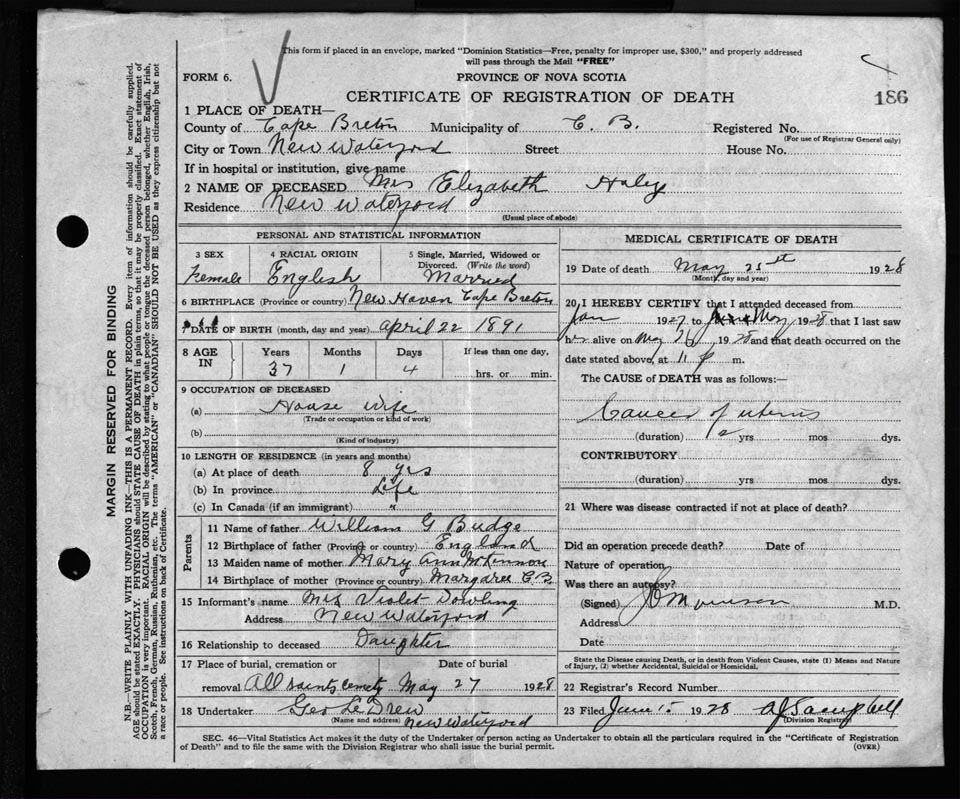 This form if placed in an envelope, marked "Dominion Statistics—Free, penalty for improper use, $300," and properly addressed
will pass through the Mail "FREE"
FORM 6.
PROVINCE OF NOVA SCOTIA
CERTIFICATE OF REGISTRATION OF DEATH
186
1 PLACE OF DEATH—
County of Cape Breton Municipality of C. B. Registered No.
(For use of Registrar General only)
City or Town New Waterford Street House No.
If in hospital or institution, give name
2 NAME OF DECEASED Mrs Elizabeth Haley
Residence New Waterford
(Usual place of abode)
PERSONAL AND STATISTICAL INFORMATION
3 SEX Female
4 RACIAL ORIGIN English
5 Single, Married, Widowed or Divorced. (Write the word) Married
6 BIRTHPLACE (Province or country) New Haven Cape Breton
7 DATE OF BIRTH (month, day and year) April 22 1891
8 AGE IN Years 37 Months 1 Days 4 If less than one day, hrs. or min.
9 OCCUPATION OF DECEASED
(a) House wife
(Trade or occupation or kind of work)
(b)
(Kind of industry)
10 LENGTH OF RESIDENCE (in years and months)
(a) At place of death 8 yrs
(b) In province Life
(c) In Canada (if an immigrant) "
Parents
11 Name of father William G Budge
12 Birthplace of father (Province or country) England
13 Maiden name of mother Mary Ann McKinnon
14 Birthplace of mother (Province or country) Margaree C.B
15 Informant's name Mrs Violet Dowling
Address New Waterford
16 Relationship to deceased Daughter
17 Place of burial, cremation or removal All Saints Cemety Date of burial May 27 1928
18 Undertaker Geo LeDrew
(Name and address) New Waterford
MEDICAL CERTIFICATE OF DEATH
19 Date of death May 25st 1928
(Month, day and year)
20 I HEREBY CERTIFY that I attended deceased from
Jan 1927 to May 1928 that I last saw
h alive on May 1928 and that death occurred on the
date stated above, at 11 p m.
The CAUSE of DEATH was as follows:
Cancer of uterus
(duration) 2 yrs mos dys.
CONTRIBUTORY
(duration) yrs mos dys.
21 Where was disease contracted if not at place of death?
Did an operation precede death? Date of
Nature of operation
Was there an autopsy?
(Signed) M.D.
Address
Date
State the Disease causing Death, or in death from Violent Causes, state (1) Means and Nature
of Injury, (2) whether Accidental, Suicidal or Homicidal.
22 Registrar's Record Number
23 Filed June 1928 AJ Campbell
(Division Registrar)
SEC. 46—Vital Statistics Act makes it the duty of the Undertaker or person acting as Undertaker to obtain all the particulars required in the "Certificate of Registration
of Death" and to file the same with the Division Registrar who shall issue the burial permit.
(OVER)
MARGIN RESERVED FOR BINDING
N.B.—WRITE PLAINLY WITH UNFADING INK—THIS IS A PERMANENT RECORD. Every item of information should be carefully supplied.
AGE should be stated EXACTLY. PHYSICIANS should STATE CAUSE OF DEATH in plain terms, so that it may be properly classified. Exact statement of
OCCUPATION is very important. RACIAL ORIGIN will be described by stating to what people or tongue the deceased person belonged, whether English, Irish,
Scotch, French, German, Russian, Ruthenian, etc. The terms "AMERICAN" or "CANADIAN" SHOULD NOT BE USED as they express citizenship but not
a race or people. See instructions on back of Certificate.